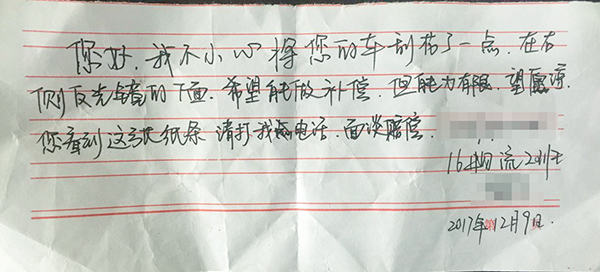 你好，我不小心将您的车刮花了一点，在右
侧反光镜的下面，希望能做补偿，但能力有限，望愿谅，
您看到这张纸条 请打我电话，面谈赔偿。
16物流
2017年12月9日